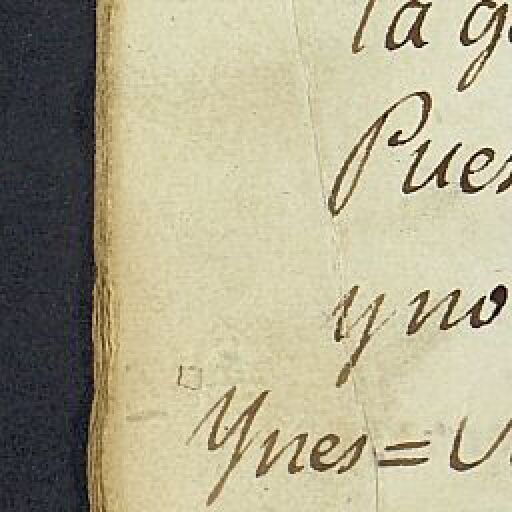 la
Pues
y no
Ynes =